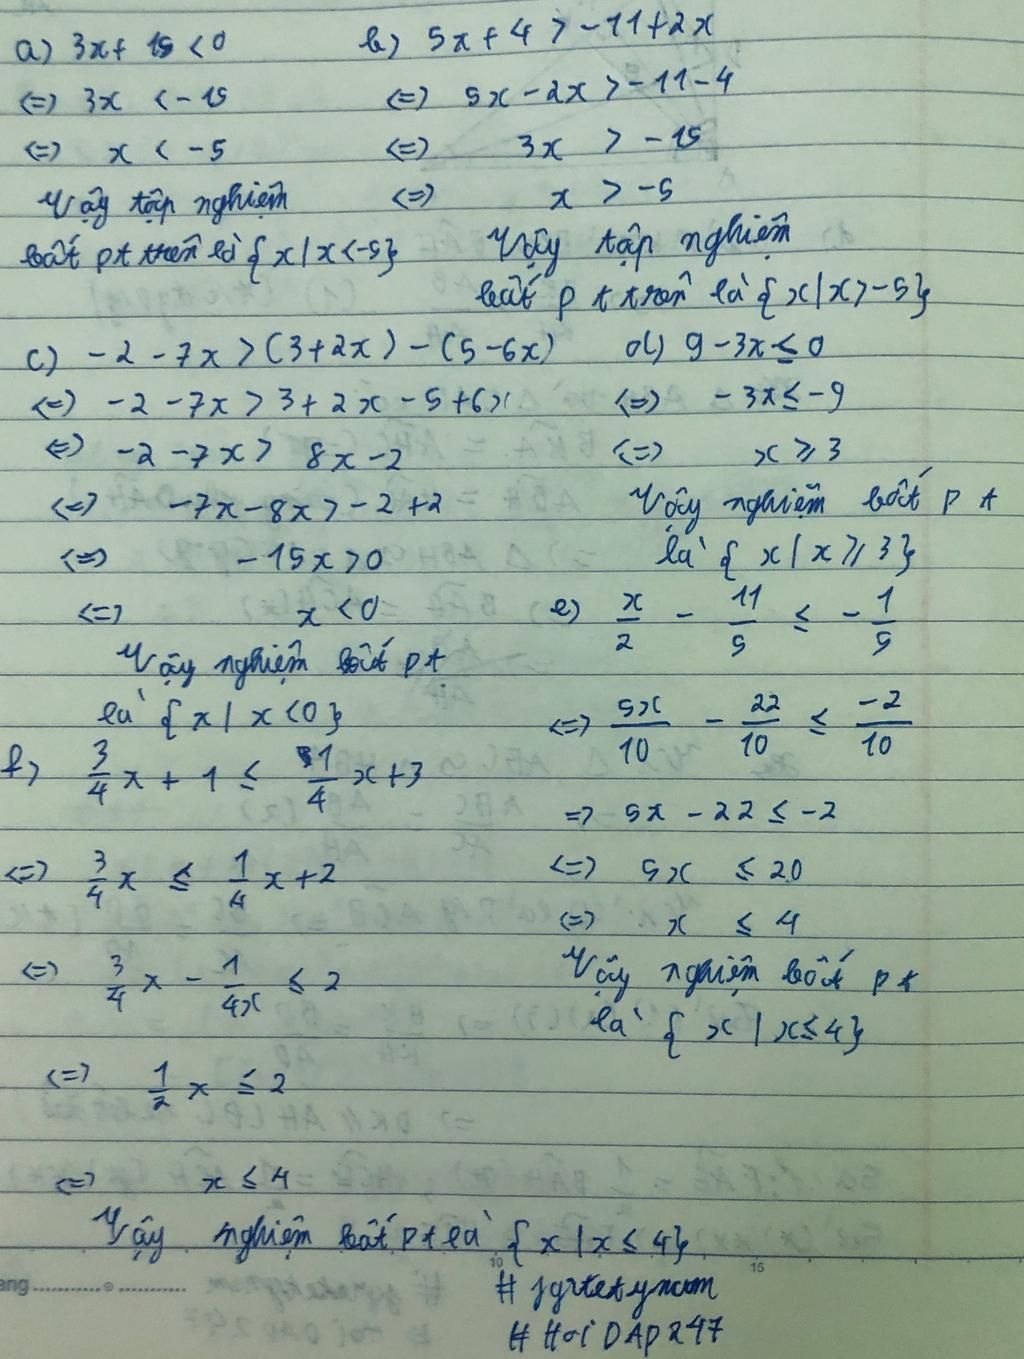 a) 3x + 15 < 0
<=> 3x < -15
<=> x < -5
Vậy tập nghiệm
bất pt trên là {x | x < -5}
b) 5x + 4 > -11 + 2x
<=> 5x - 2x > -11 - 4
<=> 3x > -15
<=> x > -5
Vậy tập nghiệm
bất pt trên là {x | x > -5}
c) -2 - 7x > (3 + 2x) - (5 - 6x)
<=> -2 - 7x > 3 + 2x - 5 + 6x
<=> -2 - 7x > 8x - 2
<=> -7x - 8x > -2 + 2
<=> -15x > 0
<=> x < 0
Vậy nghiệm bất pt
là {x | x < 0}
d) 9 - 3x ≤ 0
<=> -3x ≤ -9
<=> x ≥ 3
Vậy nghiệm bất pt
là {x | x ≥ 3}
e) x/2 - 11/5 ≤ -1/5
<=> 5x/10 - 22/10 ≤ -2/10
=> 5x - 22 ≤ -2
<=> 5x ≤ 20
<=> x ≤ 4
Vậy nghiệm bất pt
là {x | x ≤ 4}
f) 3/4 x + 1 ≤ 1/4 x + 3
<=> 3/4 x ≤ 1/4 x + 2
<=> 3/4 x - 1/4x ≤ 2
<=> 1/2 x ≤ 2
<=> x ≤ 4
Vậy nghiệm bất pt là {x | x ≤ 4}
10 15
# HoiDAP247